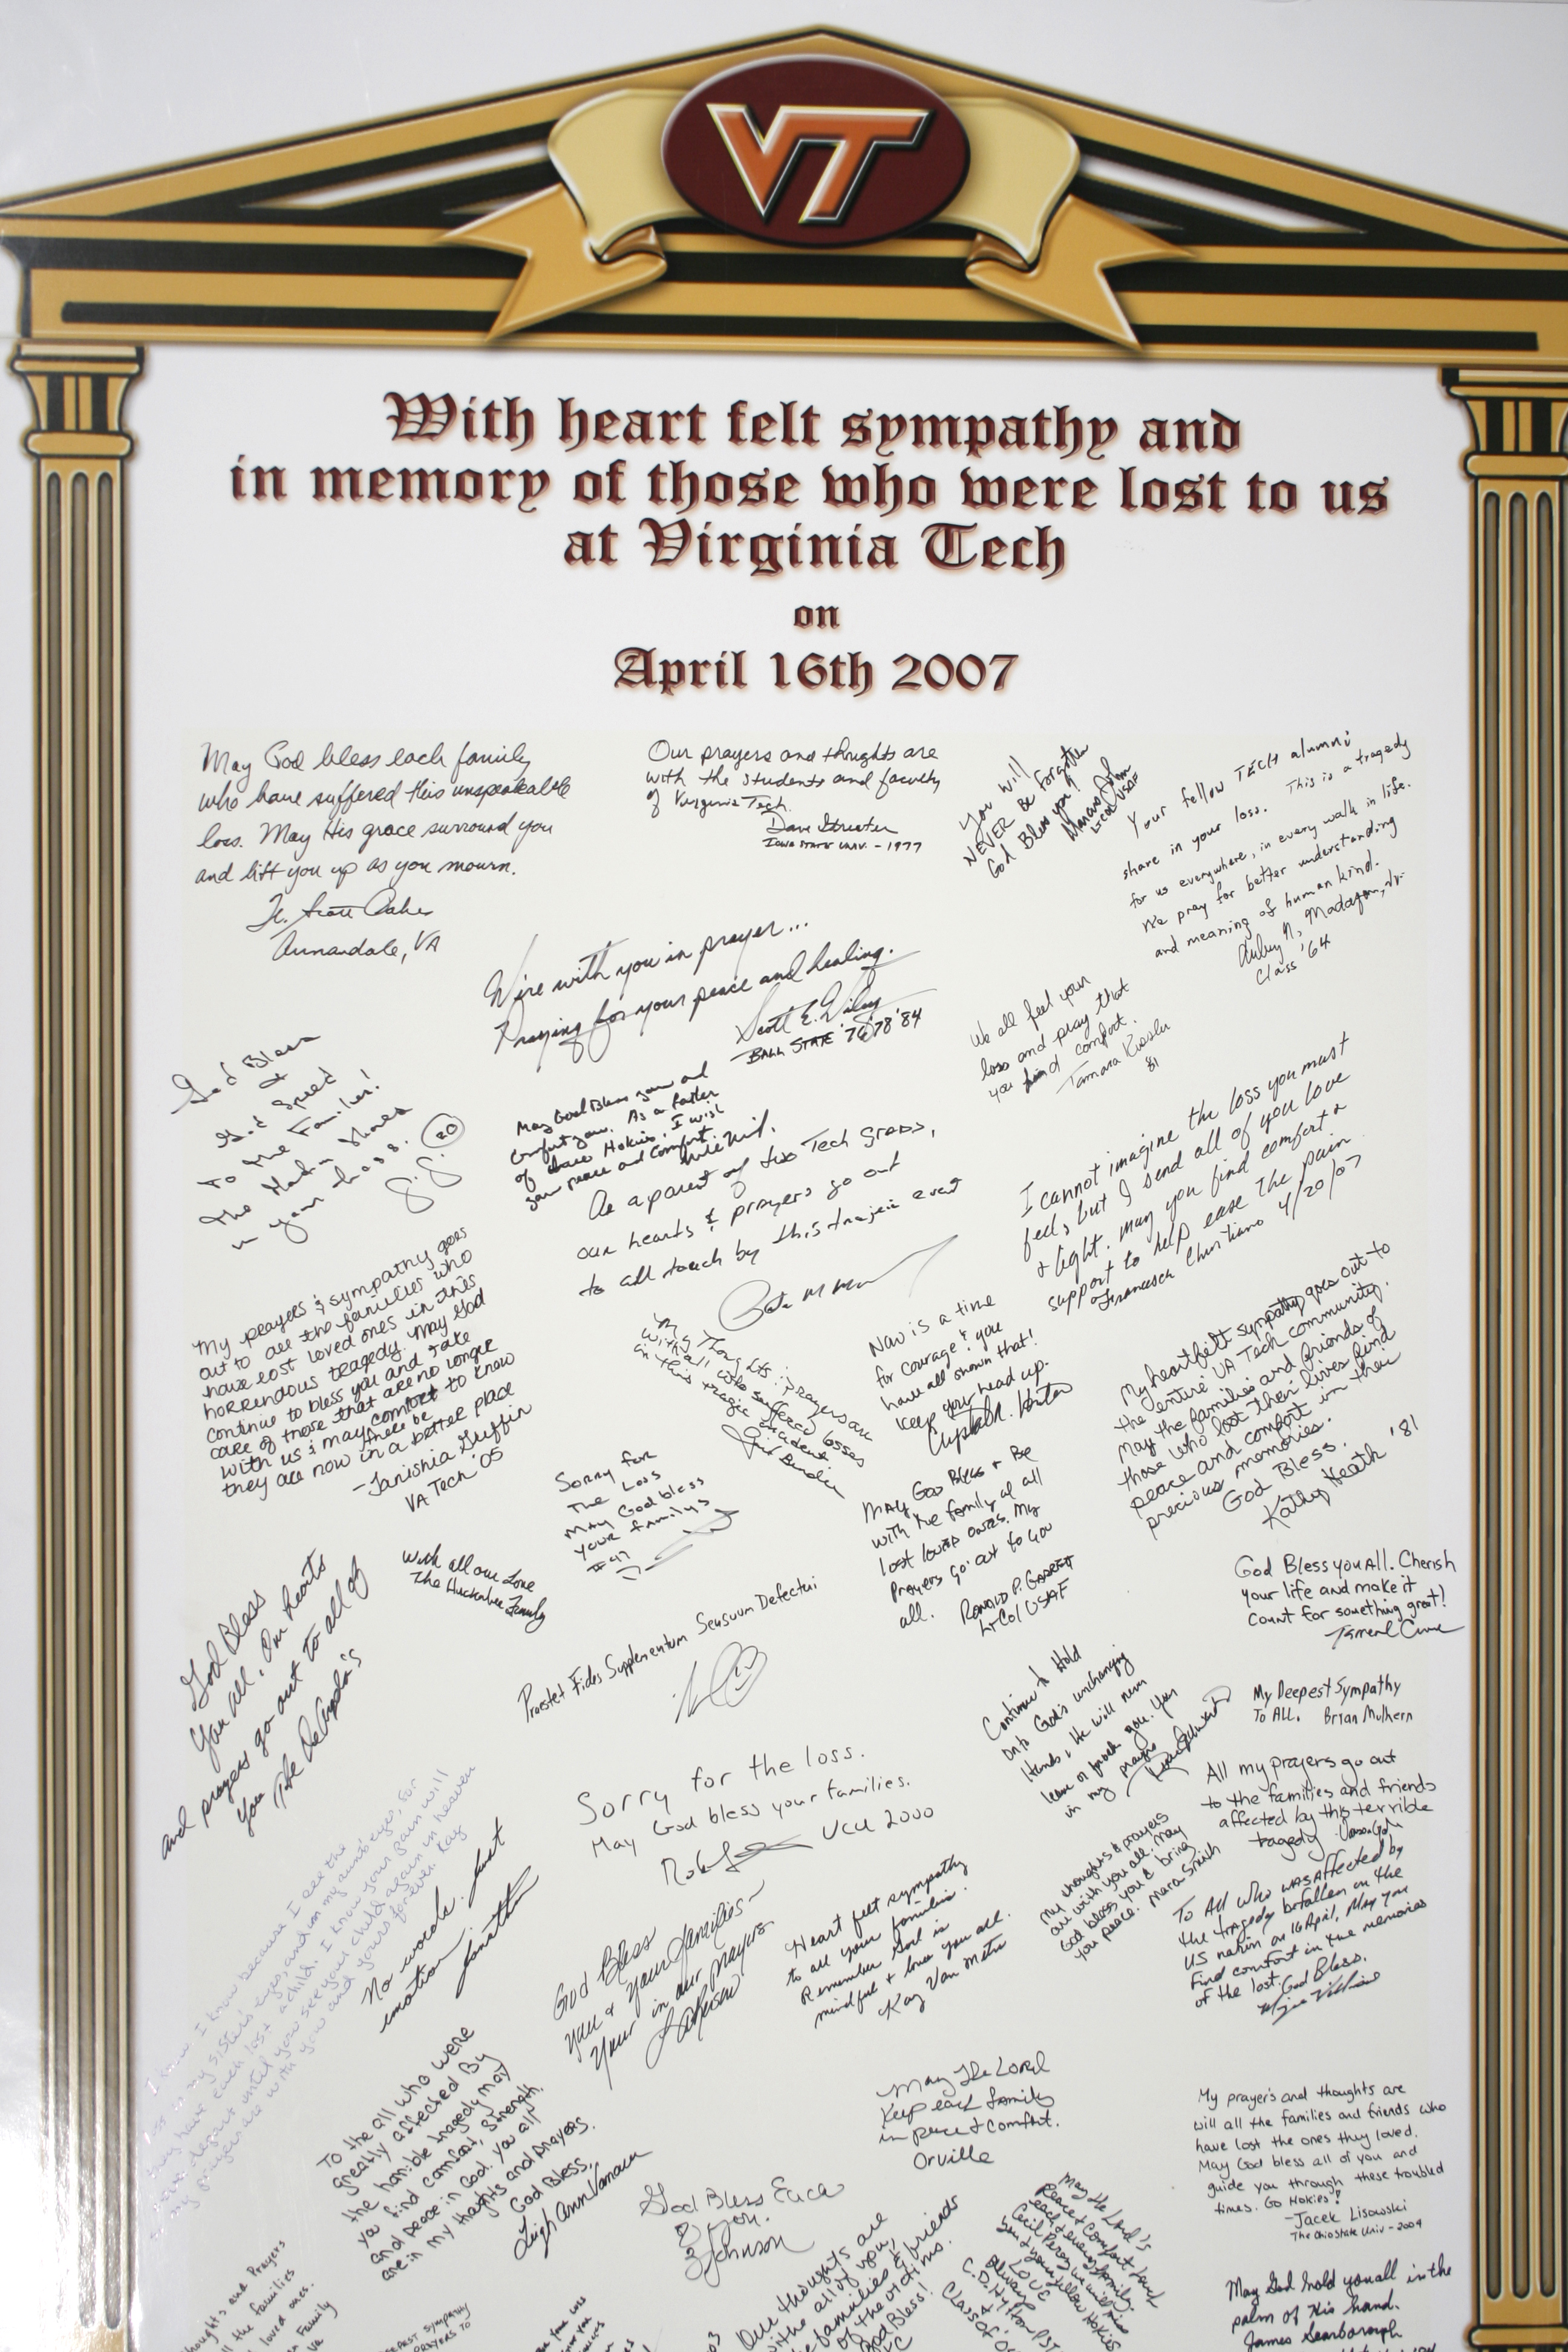 VT
With heart felt sympathy and
in memory of those who were lost to us
at Virginia Tech
on
April 16th 2007
May God bless each family
who have suffered this unspeakable
loss. May His grace surround you
and lift you up as you mourn.
Annandale, VA
Our prayers and thoughts are
with the students and faculty
of Virginia Tech.
Dave Streeter
Iowa State Univ. - 1977
You will
NEVER Be forgotten
God Bless you!
LtCol USAF
Your fellow TECH alumni
share in your loss. This is a tragedy
for us everywhere, in every walk in life.
We pray for better understanding
and meaning of human kind.
Class '64
We're with you in prayer...
Praying for your peace and healing.
Scott E. Wiley
BALL STATE '76 '78 '84
We all feel your
loss and pray that
you find comfort.
Tamara
81
God Bless
&
God Speed
To the Families!
in your Loss.
May God Bless you and
comfort you. As a father
of three Hokies, I wish
your peace and comfort.
As a parent of two Tech grads,
our hearts & prayers go out
to all touch by this trajic event
I cannot imagine the loss you must
feel, but I send all of you love
& light. May you find comfort &
support to help ease the pain
Francesca Christiano 4/20/07
My prayers & sympathy goes
out to all the families who
have lost loved ones in this
horrendous tragedy. May God
continue to bless you and take
care of those that are no longer
with us & may there be comfort to know
they are now in a better place
- Tanishia Griffin
VA Tech '05
My Thoughts & prayers are
with all who suffered losses
in this tragic incident
Now is a time
for courage & you
have all shown that!
Keep your head up.
My heartfelt sympathy goes out to
the entire VA Tech community.
May the families and friends of
those who lost their lives find
peace and comfort in their
precious memories.
God Bless.
Kathy Heath '81
Sorry for
The Loss
May God bless
your familys
#47
MAY GOD BLESS & BE
with the family of all
lost loved ones. My
prayers go out to you
all. Ronald P. Garrett
Lt Col USAF
With all our Love
The Huckabee Family
God Bless you All. Cherish
your life and make it
Count for something great!
God Bless
You all. Our hearts
and prayers go out to all of
you
Praestet Fides Supplementum Sensuum Defectui
Continue to Hold
onto God's unchanging
Hands, He will never
leave or forsake you. You
in my prayers
My Deepest Sympathy
To All. Brian Mulhern
Sorry for the loss.
May God bless your families.
VCU 2000
All my prayers go out
to the families and friends
affected by this terrible
tragedy
I know I know because I see the
loss in my sister's eyes, and in my aunt's eyes, for
they have each lost a child. I know your pain will
never depart until you see your child again in heaven
my prayers are with you and yours forever. Kay
No words. Just
emotion.
Jonathan
My thoughts & prayers
are with you all. May
God bless you & bring
you peace. Mara Smith
To All who was Affected by
the tragedy befallen on the
US nation on 16 April, May you
find comfort in the memories
of the lost. God Bless.
God Bless
you & your families~
Your in our prayers
Heart felt sympathy
to all your families.
Remember God is
mindful & loves you all.
Kay Van Metre
To the all who were
greatly affected By
the horrible tragedy may
you find comfort, strength,
and peace in God. You all
are in my thoughts and prayers.
God Bless,
Leigh Ann
May the Lord
Keep each family
in peace & comfort.
Orville
My prayer's and thoughts are
will all the families and friends who
have lost the ones they loved.
May God bless all of you and
guide you through these troubled
times. Go Hokies!
-Jacek Lisowski
The Ohio State Univ - 2004
God Bless Each
of you.
Johnson
May the Lord's
peace & comfort
Our thoughts are
with all of you,
the families & friends
of the victims.
God Bless!
May God hold you all in the
palm of His hand.
James Scarborough